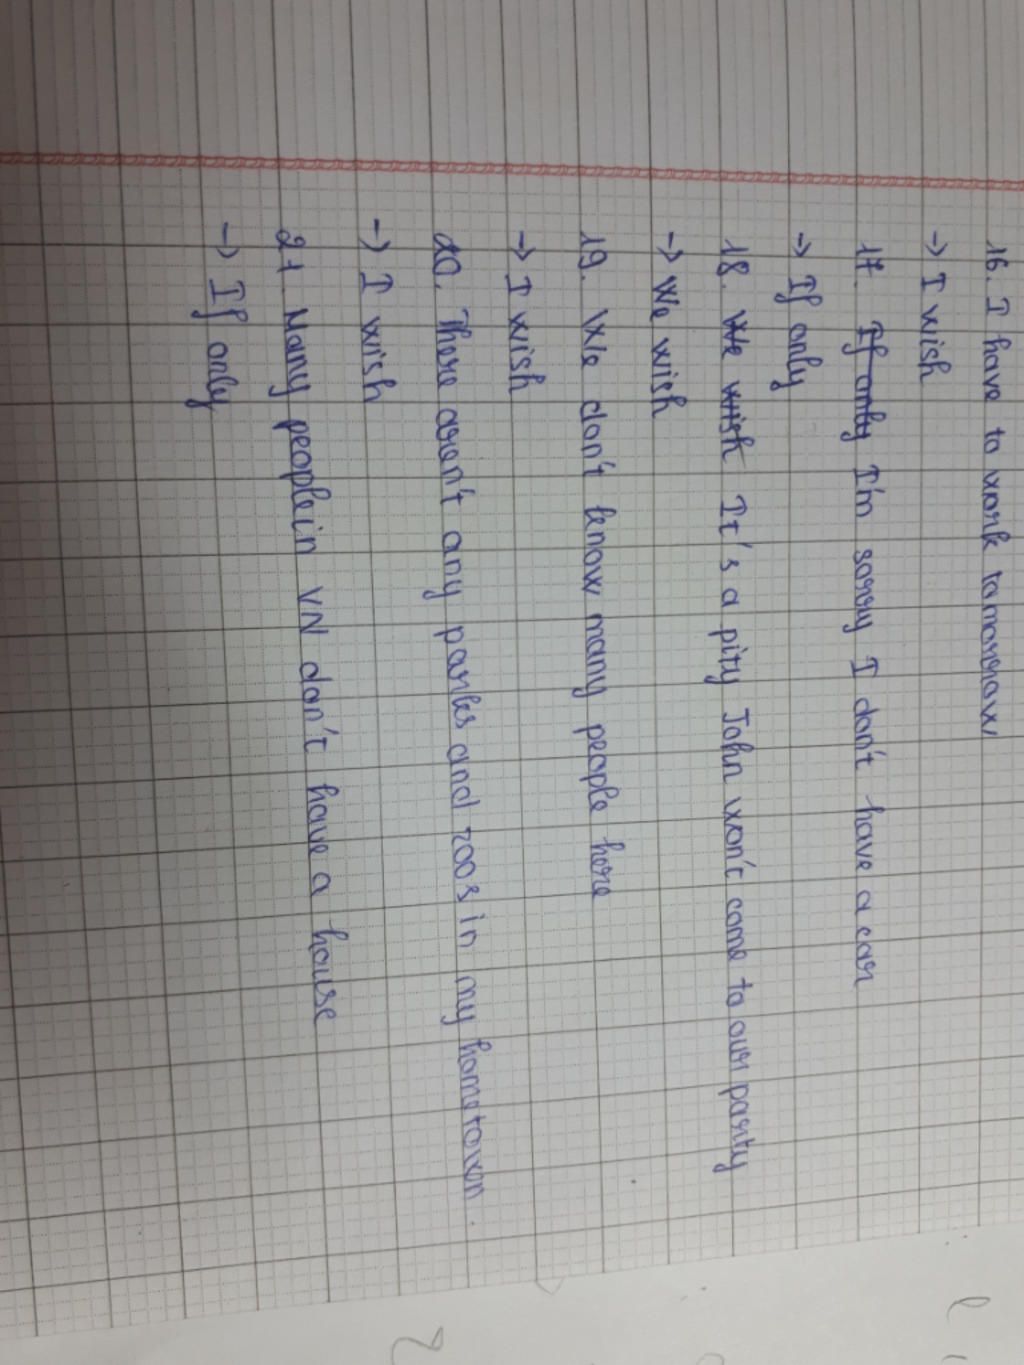 16. I have to work tomorrow
→ I wish
17. If only I'm sorry I don't have a car
→ If only
18. We wish It's a pity John won't come to our party
→ We wish
19. We don't know many people here
→ I wish
20. There aren't any parks and zoos in my hometown.
→ I wish
21. Many people in VN don't have a house
→ If only